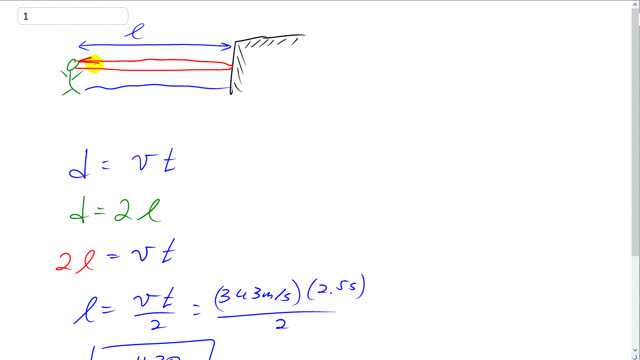 1
l
d = vt
d = 2l
2l = vt
l = vt/2 = (343m/s)(2.5s)/2